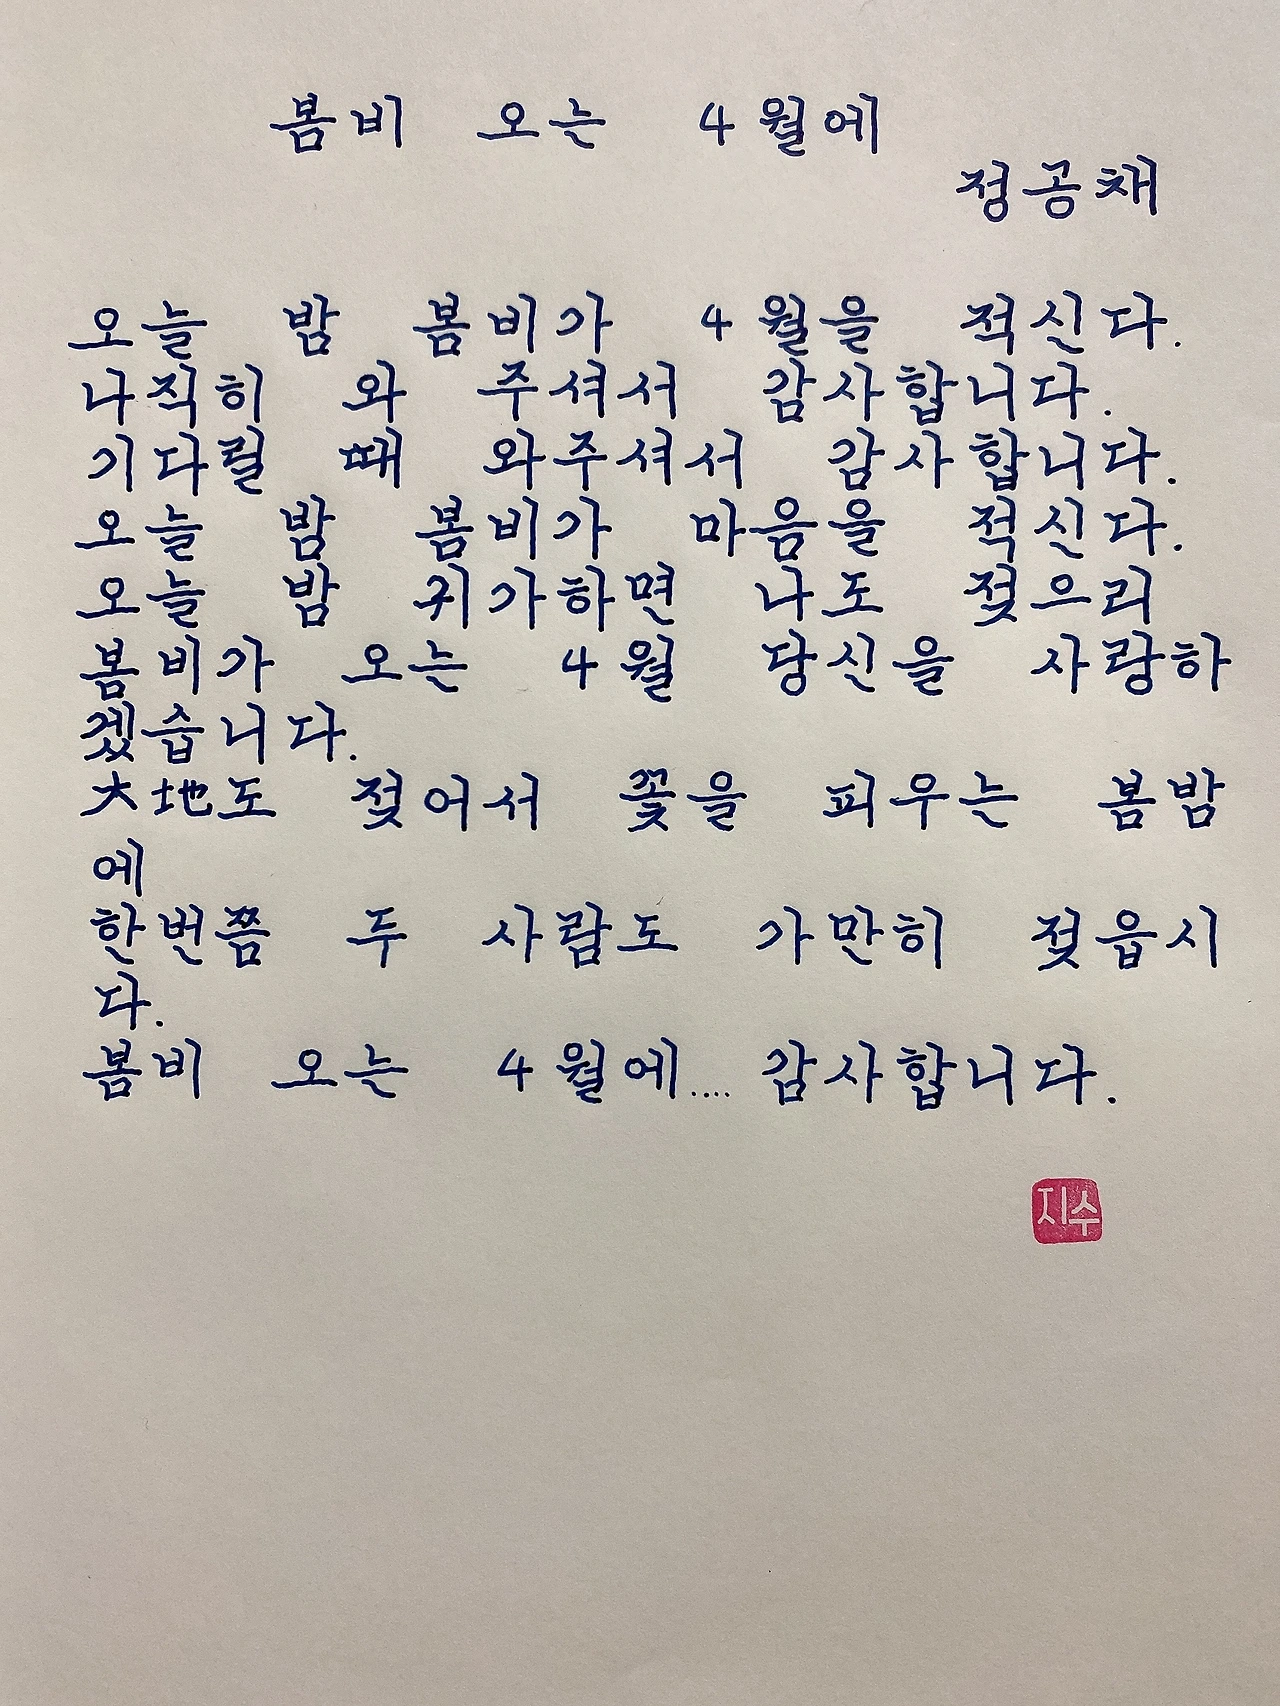 봄비 오는 4월에
정공채
오늘 밤 봄비가 4월을 적신다.
나직히 와 주셔서 감사합니다.
기다릴 때 와주셔서 감사합니다.
오늘 밤 봄비가 마음을 적신다.
오늘 밤 귀가하면 나도 젖으리
봄비가 오는 4월 당신을 사랑하
겠습니다.
大地도 젖어서 꽃을 피우는 봄밤
에
한번쯤 두 사람도 가만히 젖읍시
다.
봄비 오는 4월에.... 감사합니다.
지수